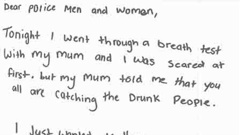 Dear Police Men and Women,
Tonight I went through a breath test
with my mum and I was scared at
first. but my mum told me that you
all are catching the Drunk People.
I Just wanted